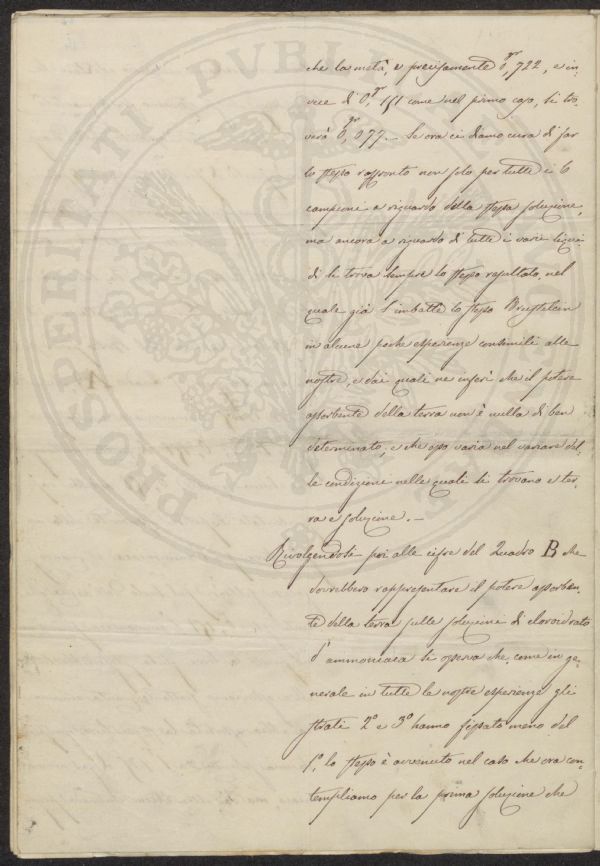 che la metà, e precisamente 0,gr722, e in-
vece di 0,gr151 come nel primo caso, si tro-
verà 0,gr077. — Se ora ci diamo cura di far
lo stesso raffronto non solo per tutti i 6
campioni a riguardo della stessa soluzione,
ma ancora a riguardo di tutti i varii liqui-
di si trova sempre lo stesso resultato, nel
quale già s'imbattè lo stesso Brustlein
in alcune poche esperienze consimili alle
nostre, e dai quali ne inferì che il potere
assorbente della terra non è nulla di ben
determinato, e che esso varia nel variare del-
le condizioni nelle quali si trovano e ter-
ra e soluzione. —
Rivolgendosi poi alle cifre del Quadro B che
dovrebbero rappresentare il potere assorben-
te della terra sulle soluzioni di cloroidrato
d'ammoniaca si osserva che, come in ge-
nerale in tutte le nostre esperienze gli
strati 2º e 3º hanno fissato meno del
1º, lo stesso è avvenuto nel caso che ora con-
templiamo per la prima soluzione che
PROSPERITATI PUBLI